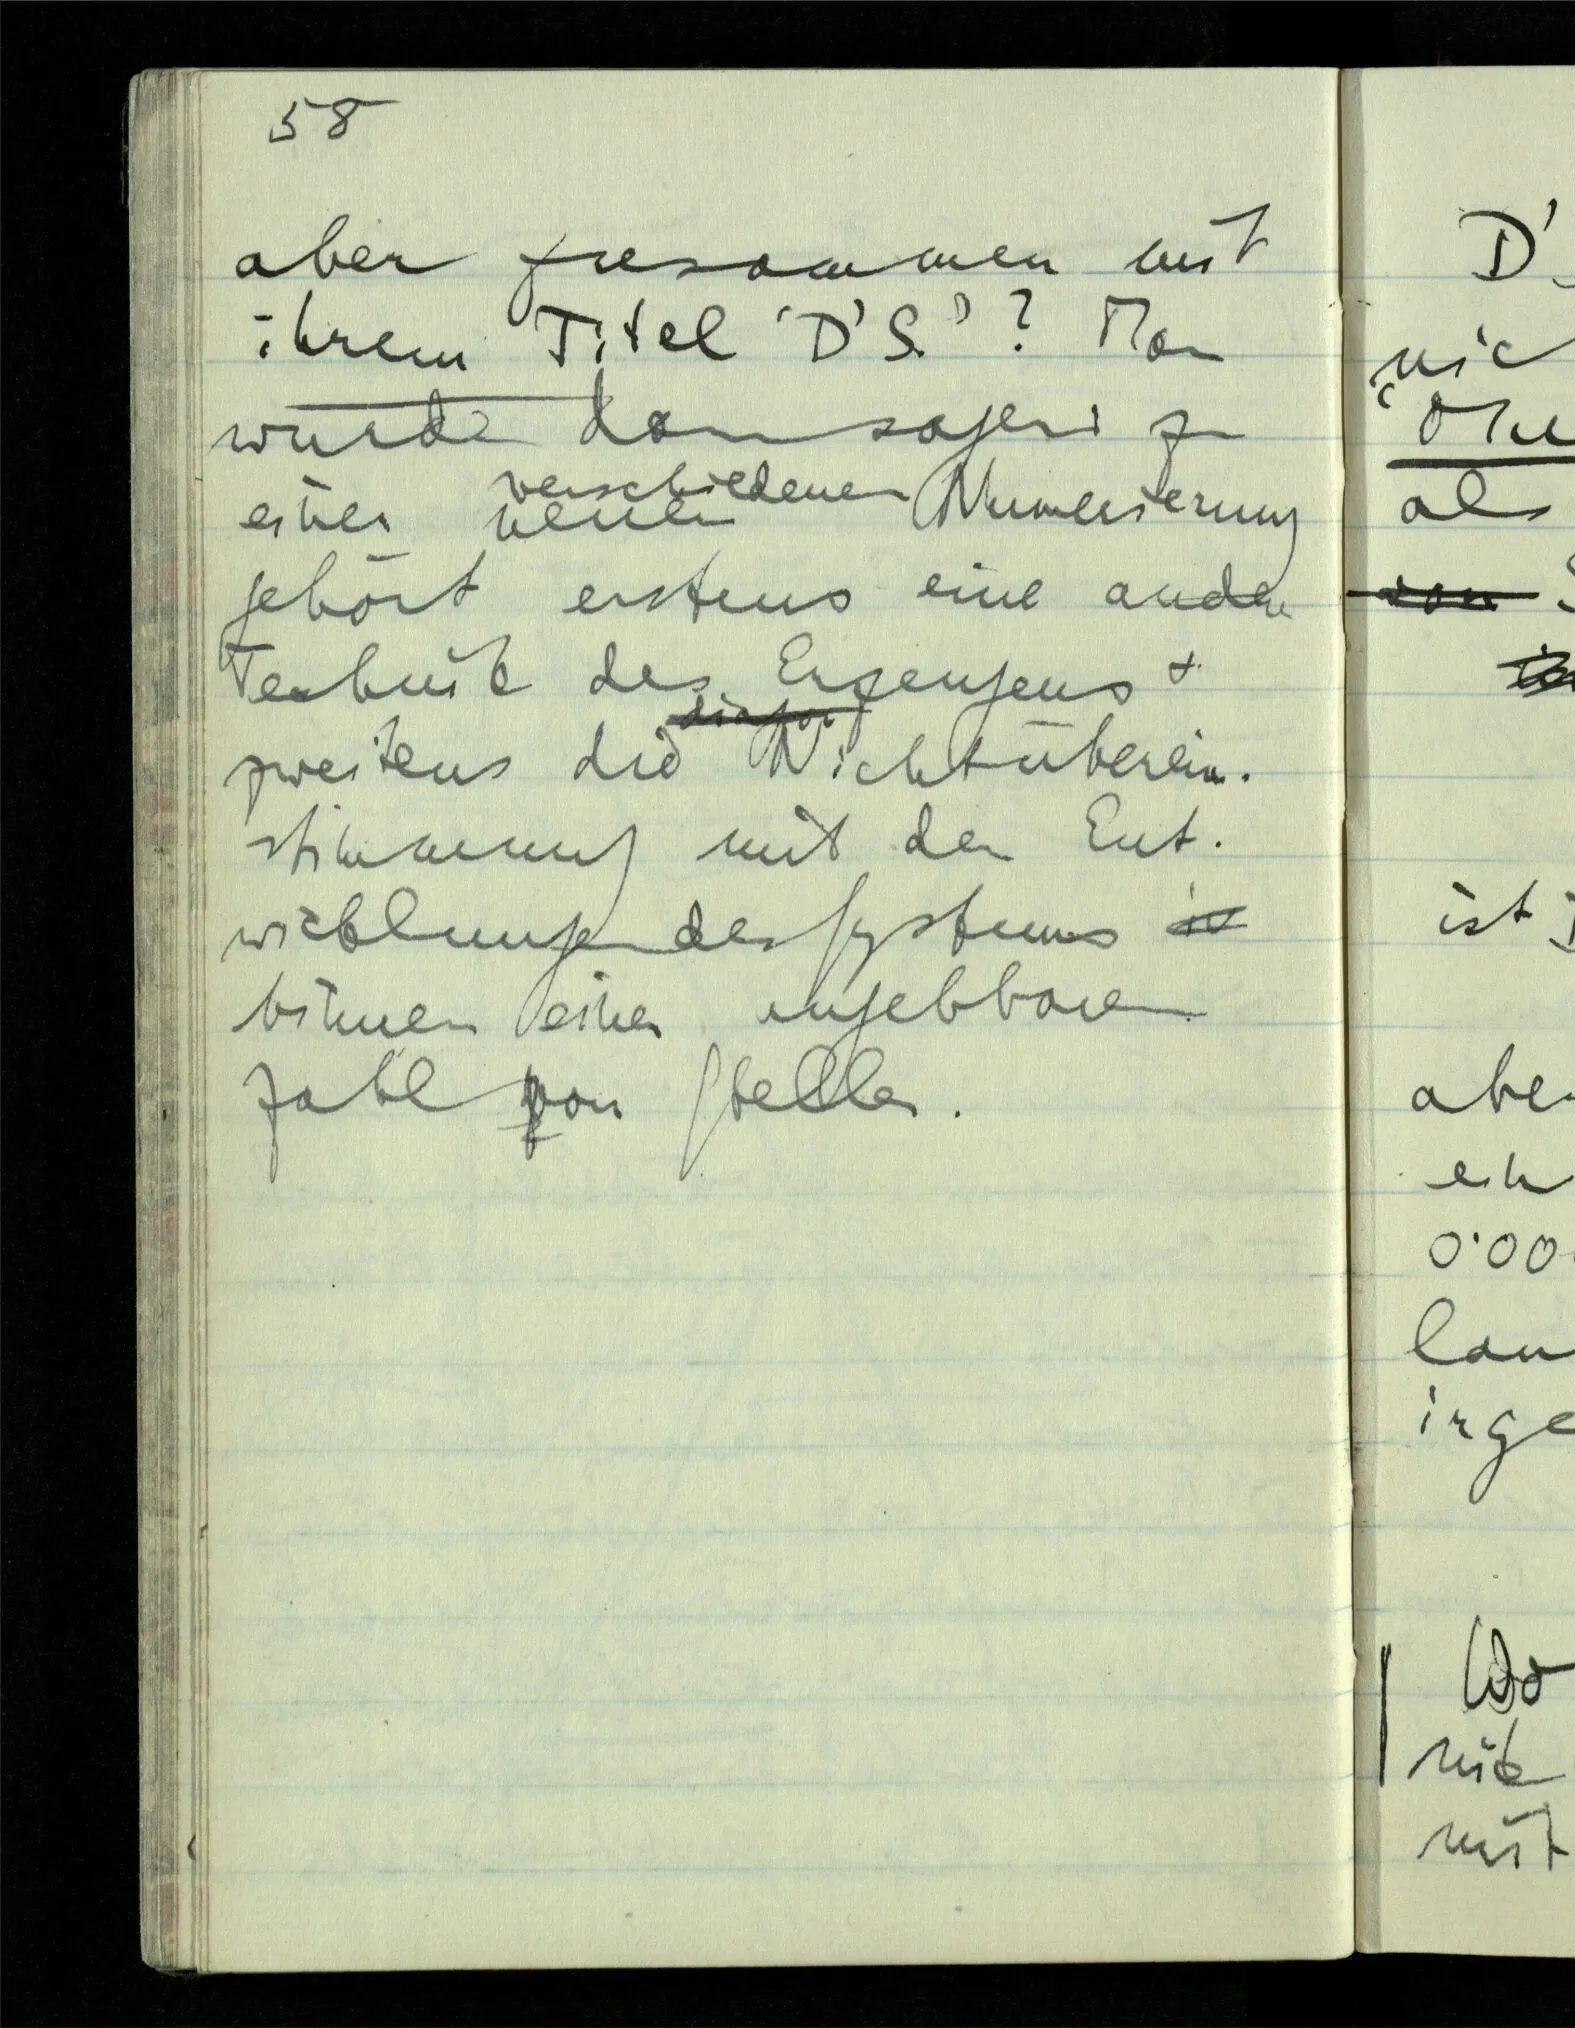 58
aber zusammen mit
ihrem Titel 'D'S.'? Man
würde dann sagen: zu
einer neuen verschiedenen Numerierung
gehört erstens eine andere
Technik des Erzeugens +
zweitens die Nichtüberein-
stimmung mit den Ent-
wicklungen des Systems in
binnen einer angebbaren
Zahl von Stellen.
D'
nic
"ohn
als
von
ist
aber
ein
0'00
lan
irge
Wo
nik
mit